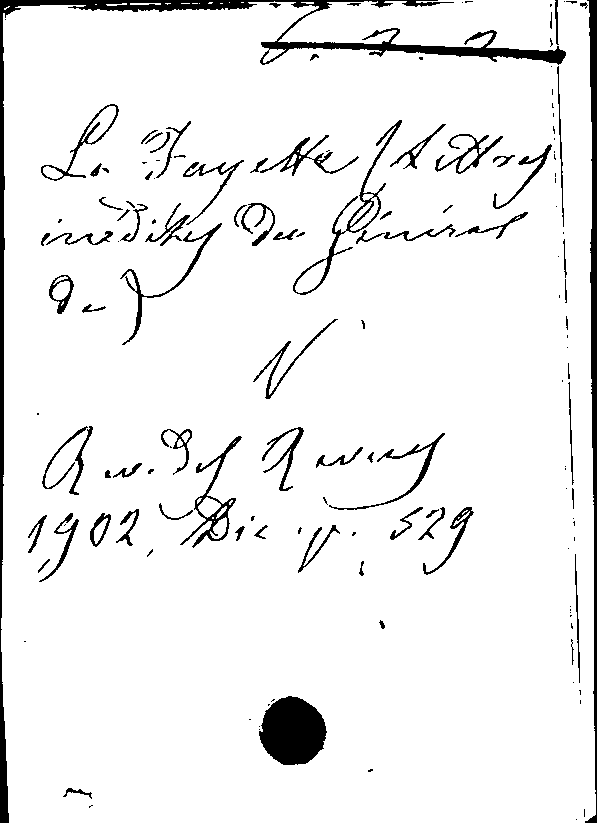 6. 7. 2
La Fayette (Lettres
inédites du Général
de)
V
Rev. des Revues
1902, Déc. p. 529